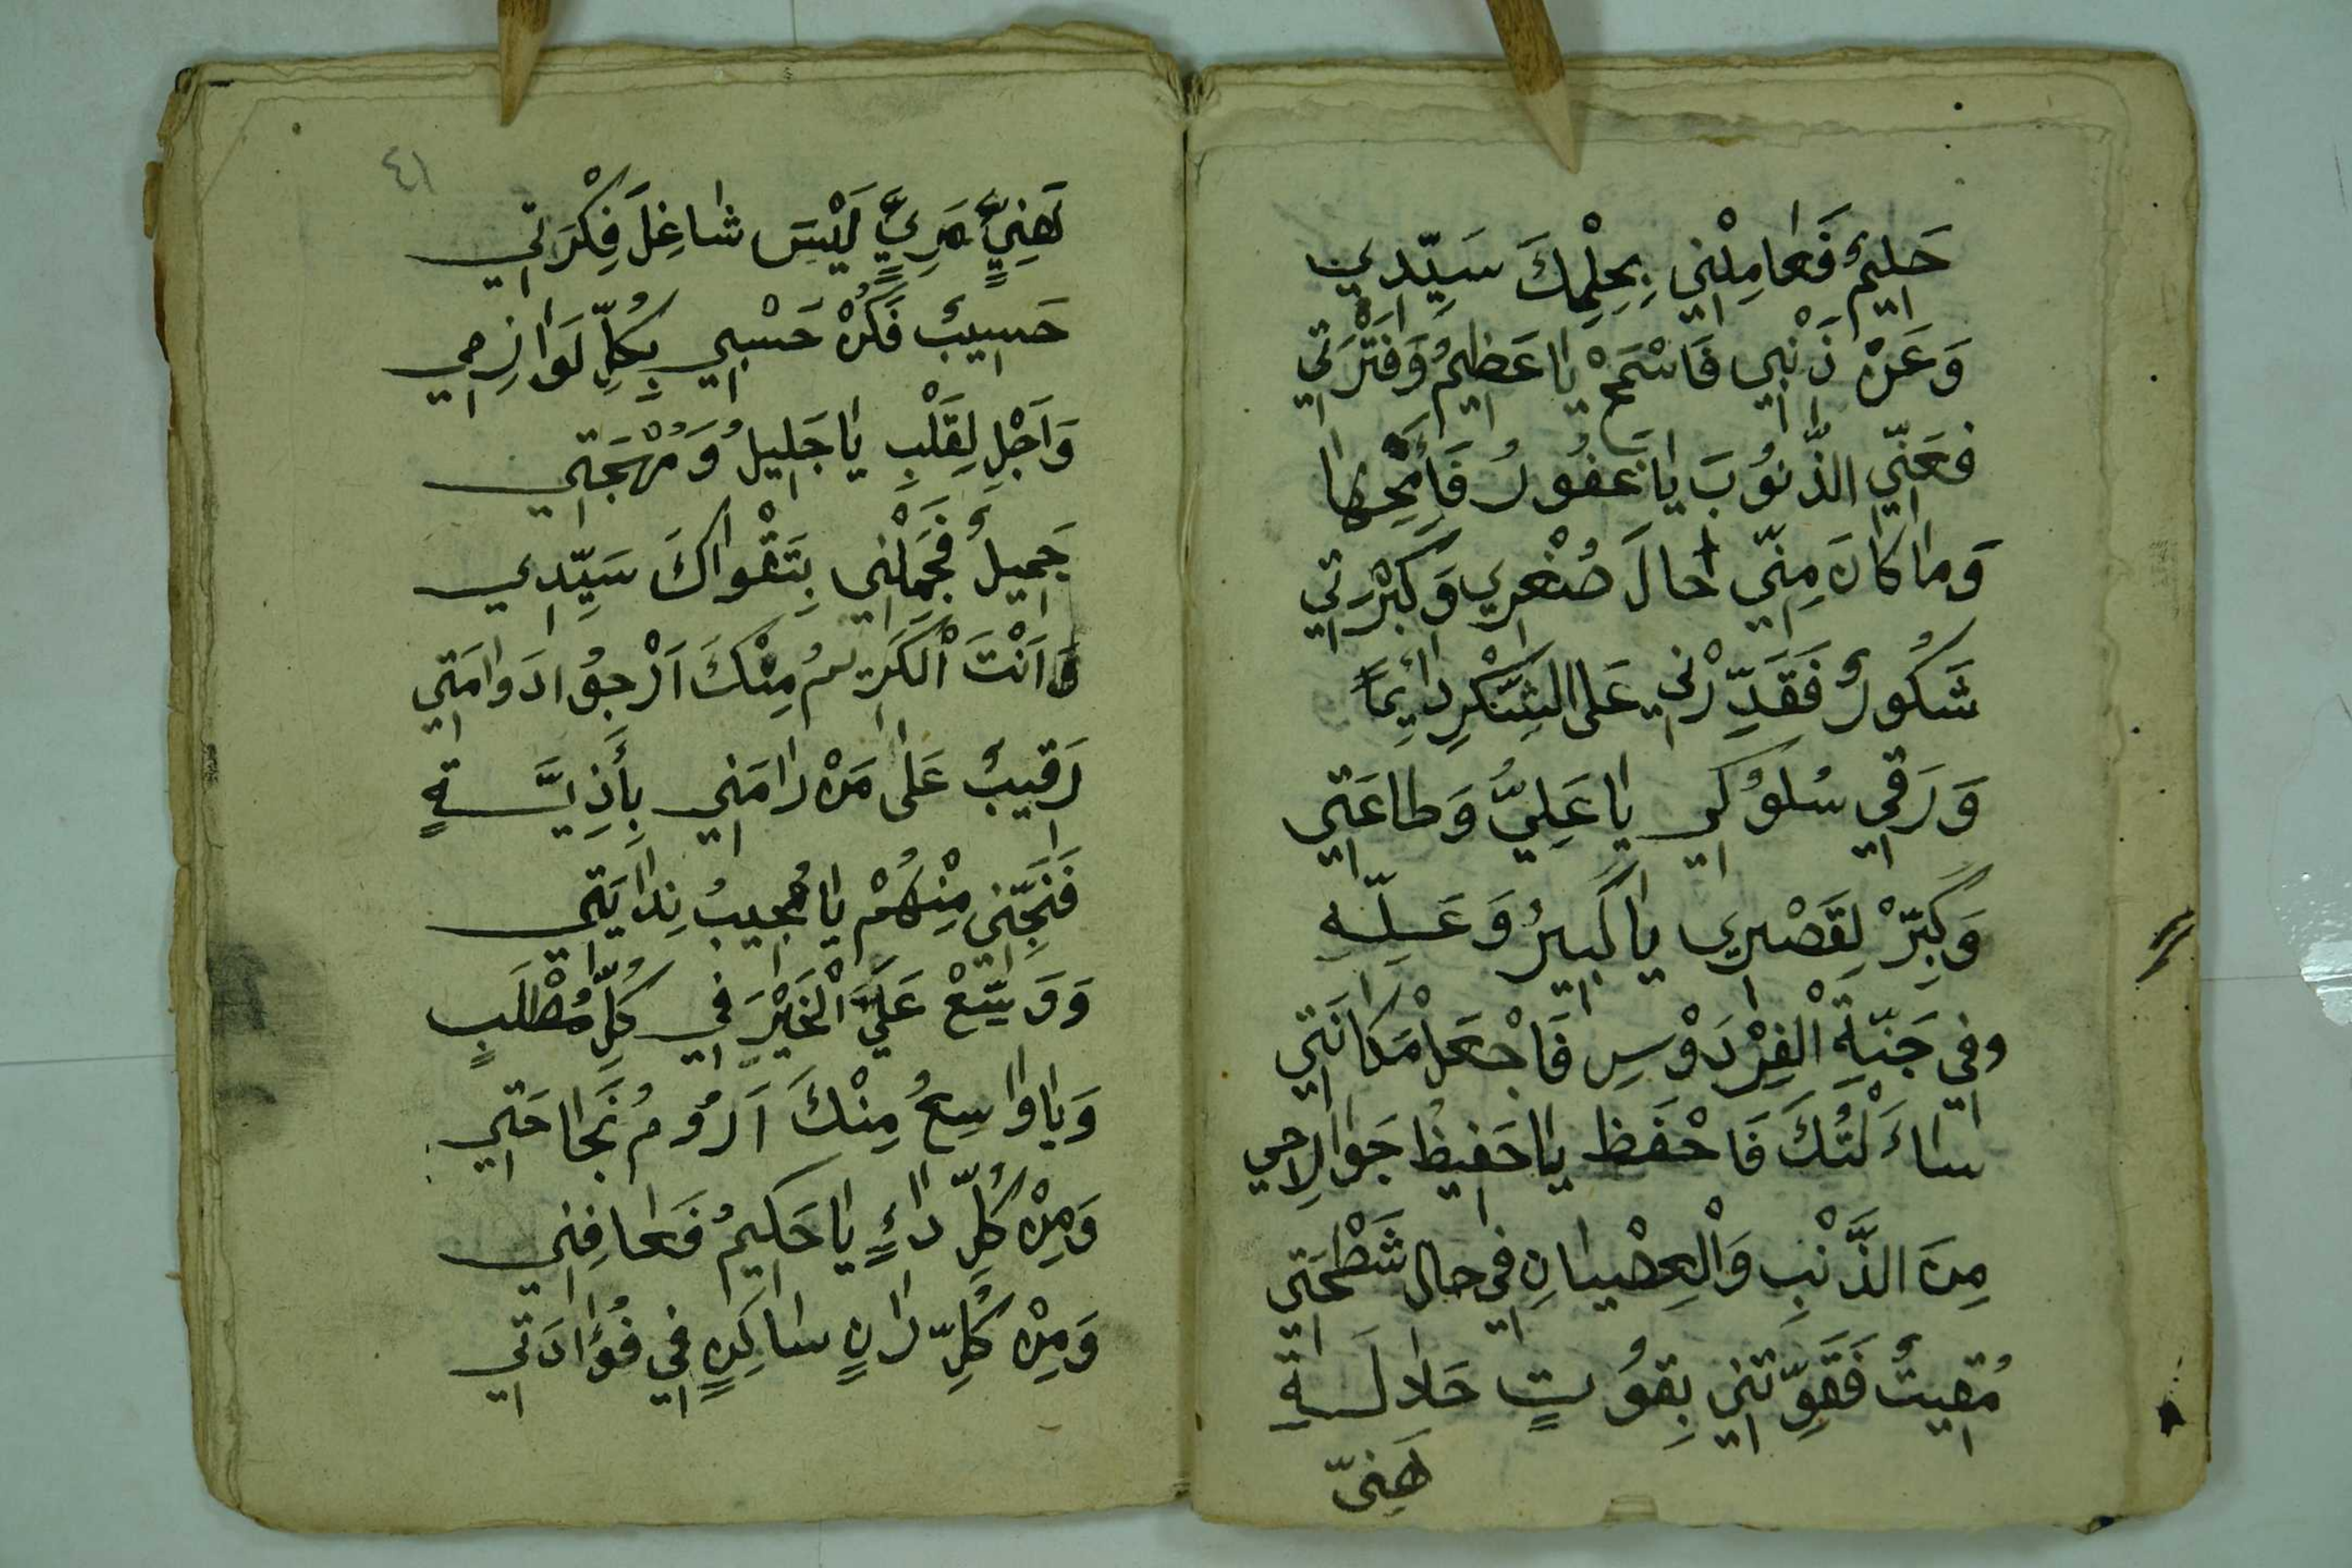 حَلِيمٌ فَعَامِلْنِي بِحِلْمِكَ سَيِّدِي
وَعَنْ ذَنْبِي فَاسْمَحْ يَا عَظِيمُ وَفَتْرَتِي
فَعَنِّي الذُّنُوبَ يَا غَفُورُ فَأَمْحِهَا
وَمَا كَانَ مِنِّي حَالَ صُغْرِي وَكَبْرَتِي
شَكُورٌ فَقَدِّرْنِي عَلَى الشُّكْرِ دَائِمًا
وَرَقِّي سُلُوكِي يَا عَلِيُّ وَطَاعَتِي
وَكَبِّرْ لِقَصْرِي يَا كَبِيرُ وَعَلِّهِ
وَفِي جَنَّةِ الْفِرْدَوْسِ فَاجْعَلْ مَكَانَتِي
سَاءَلْتُكَ فَاحْفَظ يَا حَفِيظُ جَوَارِحِي
مِنَ الذَّنْبِ وَالْعِصْيَانِ فِي حَالِ شَطْحَتِي
مُقِيتٌ فَقَوِّتْنِي بِقُوتٍ حَلَالَةٍ
هَنِيّ
٤١
هَنِيٍّ مَرِيٍّ لَيْسَ شَاغِلَ فِكْرَتِي
حَسِيبٌ فَكُنْ حَسْبِي بِكُلِّ لَوَازِمِي
وَاَجْلِ لِقَلْبِ يَا جَلِيلُ وَمُهْجَتِي
جَمِيلٌ فَجَمِّلْنِي بِتَقْوَاكَ سَيِّدِي
وَاَنْتَ الْكَرِيمُ مِنْكَ اَرْجُوا دَوَامَتِي
رَقِيبٌ عَلَى مَنْ رَامَنِي بِأَذِيَّةٍ
فَنَجِّنِي مِنْهُمْ يَا مُجِيبُ نِدَايَتِي
وَوَسِّعْ عَلَيَّ الْخَيْرَ فِي كُلِّ مُطْلَبٍ
وَيَا وَاسِعُ مِنْكَ اَرُومُ نَجَاحَتِي
وَمِنْ كُلِّ دَاءٍ يَا حَكِيمُ فَعَافِنِي
وَمِنْ كُلِّ رَانٍ سَاكِنٍ فِي فُؤَادَتِي